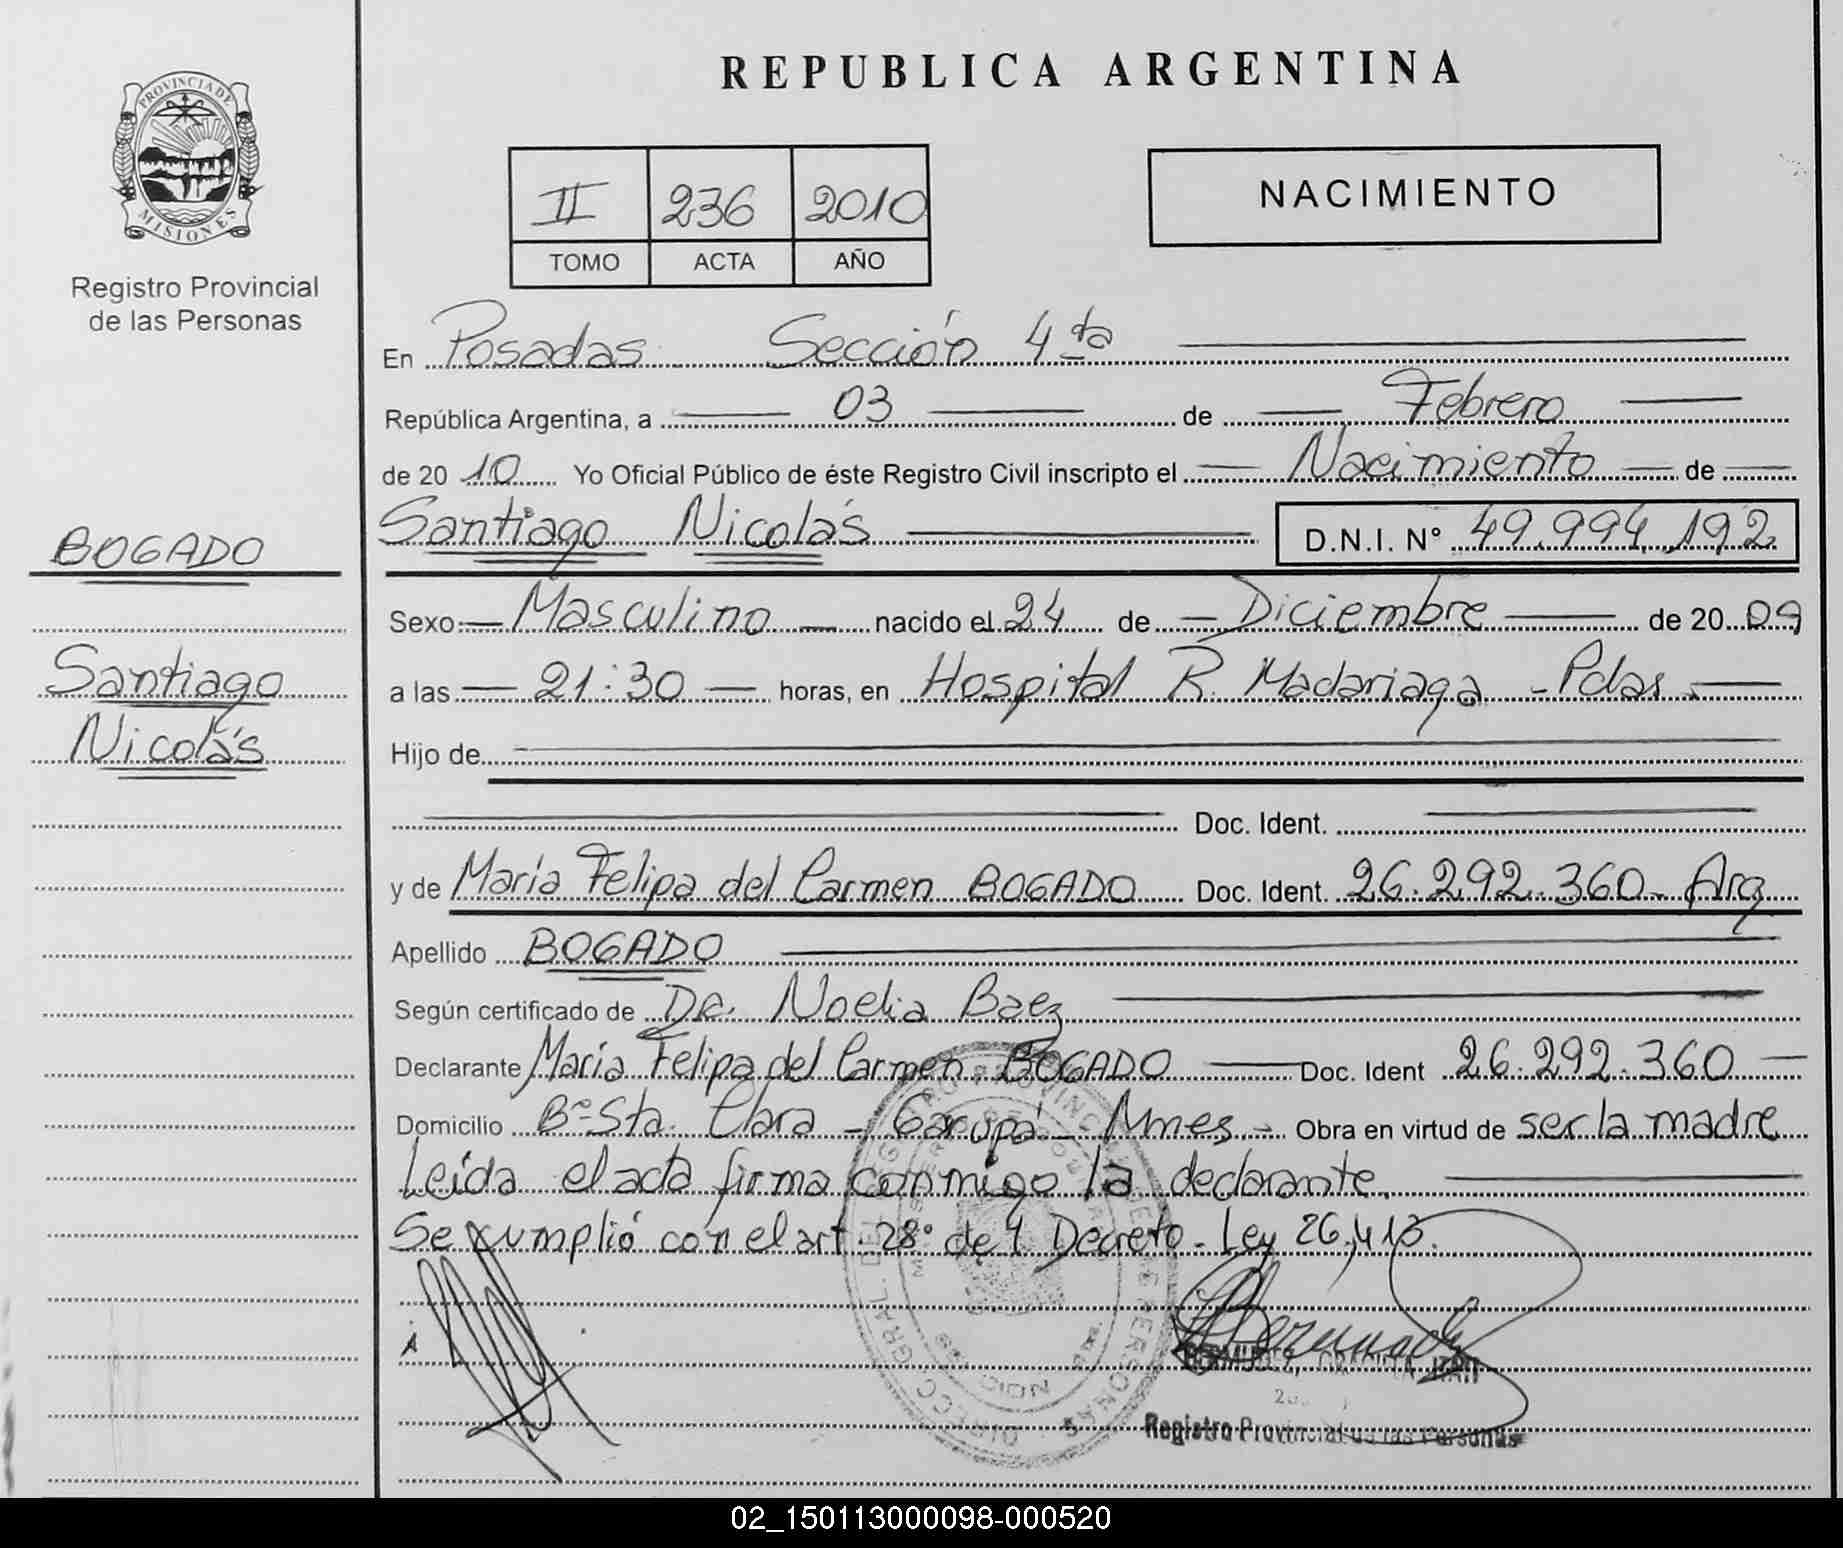 REPUBLICA ARGENTINA
PROVINCIA DE
MISIONES
Registro Provincial
de las Personas
II 236 2010
TOMO ACTA AÑO
NACIMIENTO
En Posadas Sección 4ta
República Argentina, a 03 de Febrero
de 20 10 Yo Oficial Público de éste Registro Civil inscripto el Nacimiento de
BOGADO
Santiago Nicolás D.N.I. Nº 49.994.192
Sexo Masculino nacido el 24 de Diciembre de 20 09
Santiago
a las 21:30 horas, en Hospital R. Madariaga - Pdas.
Nicolás
Hijo de
Doc. Ident.
y de María Felipa del Carmen BOGADO Doc. Ident. 26.292.360- Arg
Apellido BOGADO
Según certificado de Dr. Noelia Baez
Declarante María Felipa del Carmen BOGADO Doc. Ident 26.292.360
Domicilio Bº Sta. Clara - Garupá - Mnes. - Obra en virtud de ser la madre
Leída el acta firma conmigo la declarante.
Se cumplió con el art. 28º del Decreto - Ley 26.413.
Registro Provincial de las Personas
02_150113000098-000520